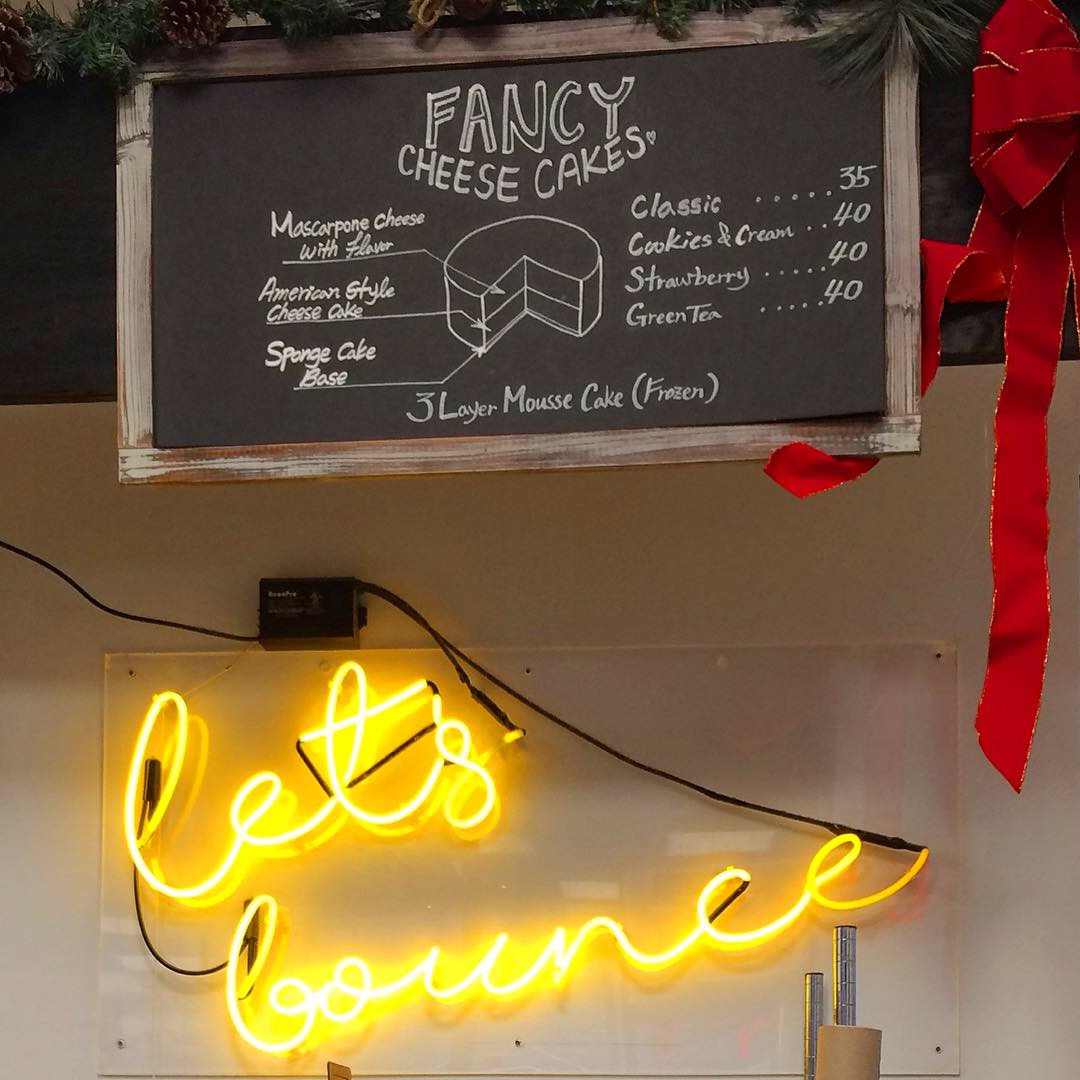 FANCY
CHEESE CAKES
Mascarpone Cheese
With Flavor
American Style
Cheese Cake
Sponge Cake
Base
Classic ..... 35
Cookies & Cream .. 40
Strawberry ..... 40
Green Tea ..... 40
3 Layer Mousse Cake (Frozen)
let's
bounce